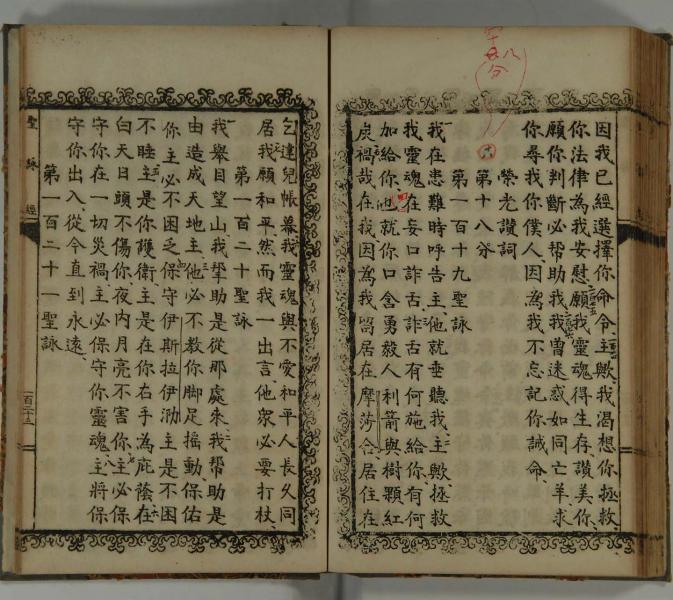 因我已經選擇你命令主歟我渴想你拯救
你法律為我安慰願我靈魂得生存讚美你
願你判斷必幫助我我曾迷惑如同亡羊求
你尋我你僕人因為我不忘記你誡命
榮光讚詞
第十八分
第一百十九聖詠
我在患難時呼告主他就垂聽我主歟拯救
我靈魂在妄口詐舌詐舌有何施給你有何
加給你他就你口舍勇毅人利箭與樹顆紅
炭禍哉在我因為我留居在摩蒍合居住在
乞達兒帳幕我靈魂與不愛和平人長久同
居我願和平然而我一出言他衆必要打杖
第一百二十聖詠
我舉目望山我幫助是從那處來我幫助是
由造成天地主他必不教你脚足搖動保佑
你主必不困乏保守伊斯拉伊泐主是不困
不睡主是你護衛主是在你右手為庇蔭在
白天日頭不傷你夜内月亮不害你主必保
守你在一切災禍主必保守你靈魂主將保
守你出入從今直到永遠
第一百二十一聖詠
聖詠經